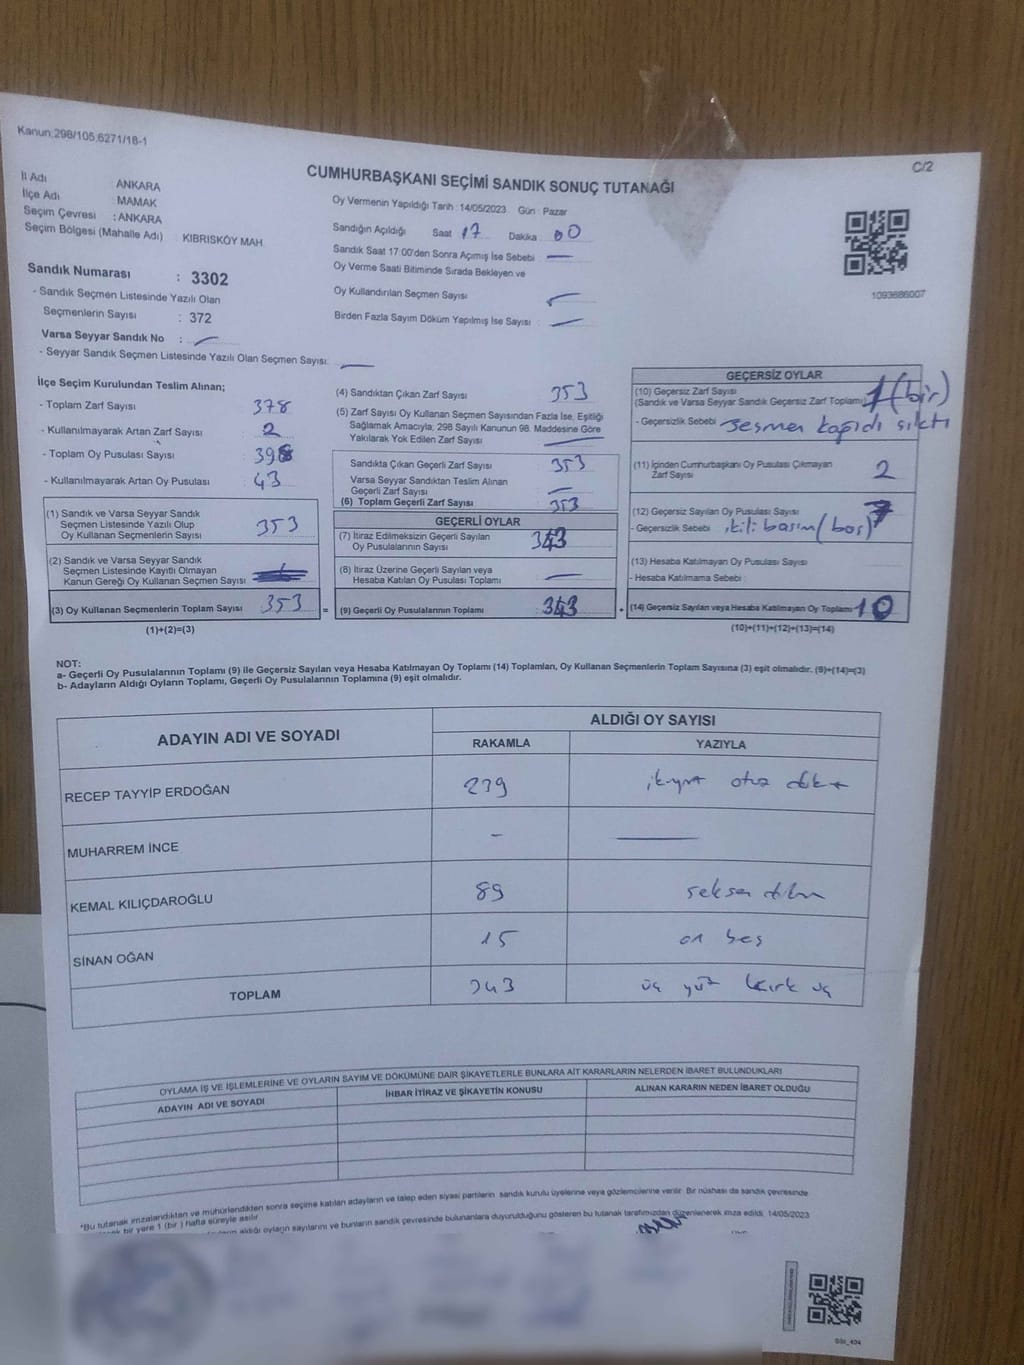 Kanun:298/105;6271/18-1
C/2
CUMHURBAŞKANI SEÇİMİ SANDIK SONUÇ TUTANAĞI
İl Adı : ANKARA
İlçe Adı : MAMAK
Seçim Çevresi : ANKARA
Seçim Bölgesi (Mahalle Adı) : KIBRISKÖY MAH.
Sandık Numarası : 3302
- Sandık Seçmen Listesinde Yazılı Olan
Seçmenlerin Sayısı : 372
Varsa Seyyar Sandık No : —
- Seyyar Sandık Seçmen Listesinde Yazılı Olan Seçmen Sayısı: —
Oy Vermenin Yapıldığı Tarih : 14/05/2023 Gün : Pazar
Sandığın Açıldığı Saat 17 Dakika 00
Sandık Saat 17:00'den Sonra Açımış İse Sebebi —
Oy Verme Saati Bitiminde Sırada Bekleyen ve
Oy Kullandırılan Seçmen Sayısı —
Birden Fazla Sayım Döküm Yapılmış İse Sayısı : —
1093686007
İlçe Seçim Kurulundan Teslim Alınan;
- Toplam Zarf Sayısı 378
- Kullanılmayarak Artan Zarf Sayısı 2
- Toplam Oy Pusulası Sayısı 398
- Kullanılmayarak Artan Oy Pusulası 43
(1) Sandık ve Varsa Seyyar Sandık
Seçmen Listesinde Yazılı Olup
Oy Kullanan Seçmenlerin Sayısı 353
(2) Sandık ve Varsa Seyyar Sandık
Seçmen Listesinde Kayıtlı Olmayan
Kanun Gereği Oy Kullanan Seçmen Sayısı
(3) Oy Kullanan Seçmenlerin Toplam Sayısı 353 =
(1)+(2)=(3)
(4) Sandıktan Çıkan Zarf Sayısı 353
(5) Zarf Sayısı Oy Kullanan Seçmen Sayısından Fazla İse, Eşitliği
Sağlamak Amacıyla, 298 Sayılı Kanunun 98. Maddesine Göre
Yakılarak Yok Edilen Zarf Sayısı —
Sandıkta Çıkan Geçerli Zarf Sayısı 353
Varsa Seyyar Sandıktan Teslim Alınan
Geçerli Zarf Sayısı —
(6) Toplam Geçerli Zarf Sayısı 353
GEÇERLİ OYLAR
(7) İtiraz Edilmeksizin Geçerli Sayılan
Oy Pusulalarının Sayısı 343
(8) İtiraz Üzerine Geçerli Sayılan veya
Hesaba Katılan Oy Pusulası Toplamı —
(9) Geçerli Oy Pusulalarının Toplamı : 343 +
GEÇERSİZ OYLAR
(10) Geçersiz Zarf Sayısı
(Sandık ve Varsa Seyyar Sandık Geçersiz Zarf Toplamı) 1 (bir)
- Geçersizlik Sebebi
(11) İçinden Cumhurbaşkanı Oy Pusulası Çıkmayan
Zarf Sayısı 2
(12) Geçersiz Sayılan Oy Pusulası Sayısı 7
- Geçersizlik Sebebi ikili basım (boş)
(13) Hesaba Katılmayan Oy Pusulası Sayısı
- Hesaba Katılmama Sebebi
(14) Geçersiz Sayılan veya Hesaba Katılmayan Oy Toplamı 10
(10)+(11)+(12)+(13)=(14)
NOT:
a- Geçerli Oy Pusulalarının Toplamı (9) ile Geçersiz Sayılan veya Hesaba Katılmayan Oy Toplamı (14) Toplamları, Oy Kullanan Seçmenlerin Toplam Sayısına (3) eşit olmalıdır. (9)+(14)=(3)
b- Adayların Aldığı Oyların Toplamı, Geçerli Oy Pusulalarının Toplamına (9) eşit olmalıdır.
ADAYIN ADI VE SOYADI ALDIĞI OY SAYISI
RAKAMLA YAZIYLA
RECEP TAYYİP ERDOĞAN 239
MUHARREM İNCE - —
KEMAL KILIÇDAROĞLU 89 seksen dokuz
SİNAN OĞAN 15 on beş
TOPLAM 343 üç yüz kırk üç
OYLAMA İŞ VE İŞLEMLERİNE VE OYLARIN SAYIM VE DÖKÜMÜNE DAİR ŞİKAYETLERLE BUNLARA AİT KARARLARIN NELERDEN İBARET BULUNDUKLARI
ADAYIN ADI VE SOYADI İHBAR İTİRAZ VE ŞİKAYETİN KONUSU ALINAN KARARIN NEDEN İBARET OLDUĞU
*Bu tutanak imzalandıktan ve mühürlendikten sonra seçime katılan adayların ve talep eden siyasi partilerin sandık kurulu üyelerine veya gözlemcilerine verilir. Bir nüshası da sandık çevresinde
bir yere 1 (bir) hafta süreyle asılır.
aldığı oyların sayılarını ve bunların sandık çevresinde bulunanlara duyurulduğunu gösteren bu tutanak tarafımızdan düzenlenerek imza edildi. 14/05/2023